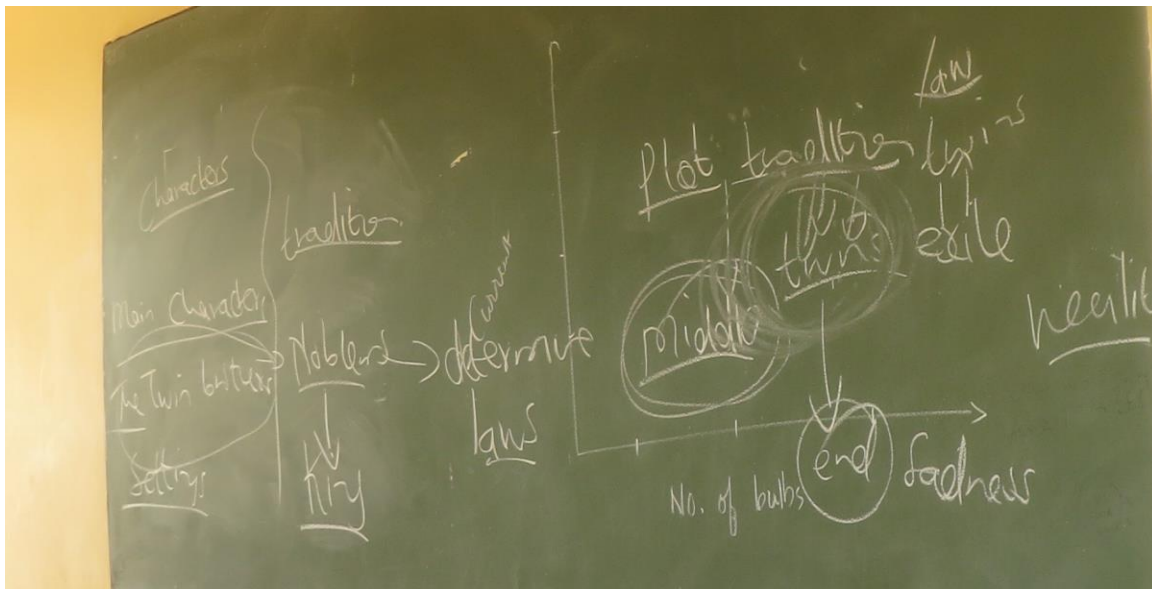 Characters
Main Characters
The Twin brothers
Settings
tradition
King
Current
determine
laws
Plot tradition
law
twins
exile
twins
Middle
end
Sadness
No. of bulbs